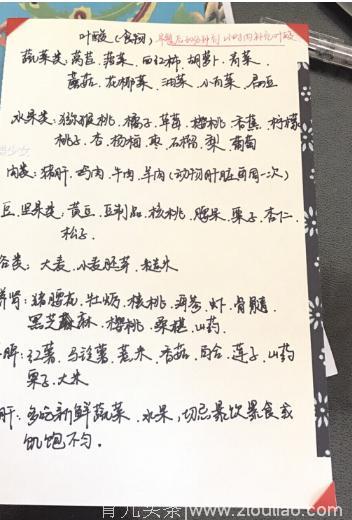 叶酸(食物) 早餐后30分钟到1小时内补充叶酸
蔬菜类: 莴苣. 菠菜. 西红柿. 胡萝卜. 青菜.
蘑菇. 花椰菜. 油菜. 小白菜. 扁豆
水果类: 猕猴桃. 橘子. 草莓. 樱桃. 香蕉. 柠檬
桃子. 杏. 杨梅. 枣. 石榴. 梨. 葡萄
肉类: 猪肝. 鸡肉. 牛肉. 羊肉 (动物肝脏可周一次)
豆. 坚果类: 黄豆. 豆制品. 核桃. 腰果. 栗子. 杏仁.
松子.
谷类: 大麦. 小麦胚芽. 糙米
养肾: 猪腰花. 牡蛎. 核桃. 海参. 虾. 骨髓.
黑芝麻. 樱桃. 桑椹. 山药.
脾: 红薯. 马铃薯. 薏米. 香菇. 百合. 莲子. 山药
栗子. 大米
肝: 多吃新鲜蔬菜. 水果, 切忌暴饮暴食或
饥饱不匀。
少女
育儿头条 www.zloutiao.com